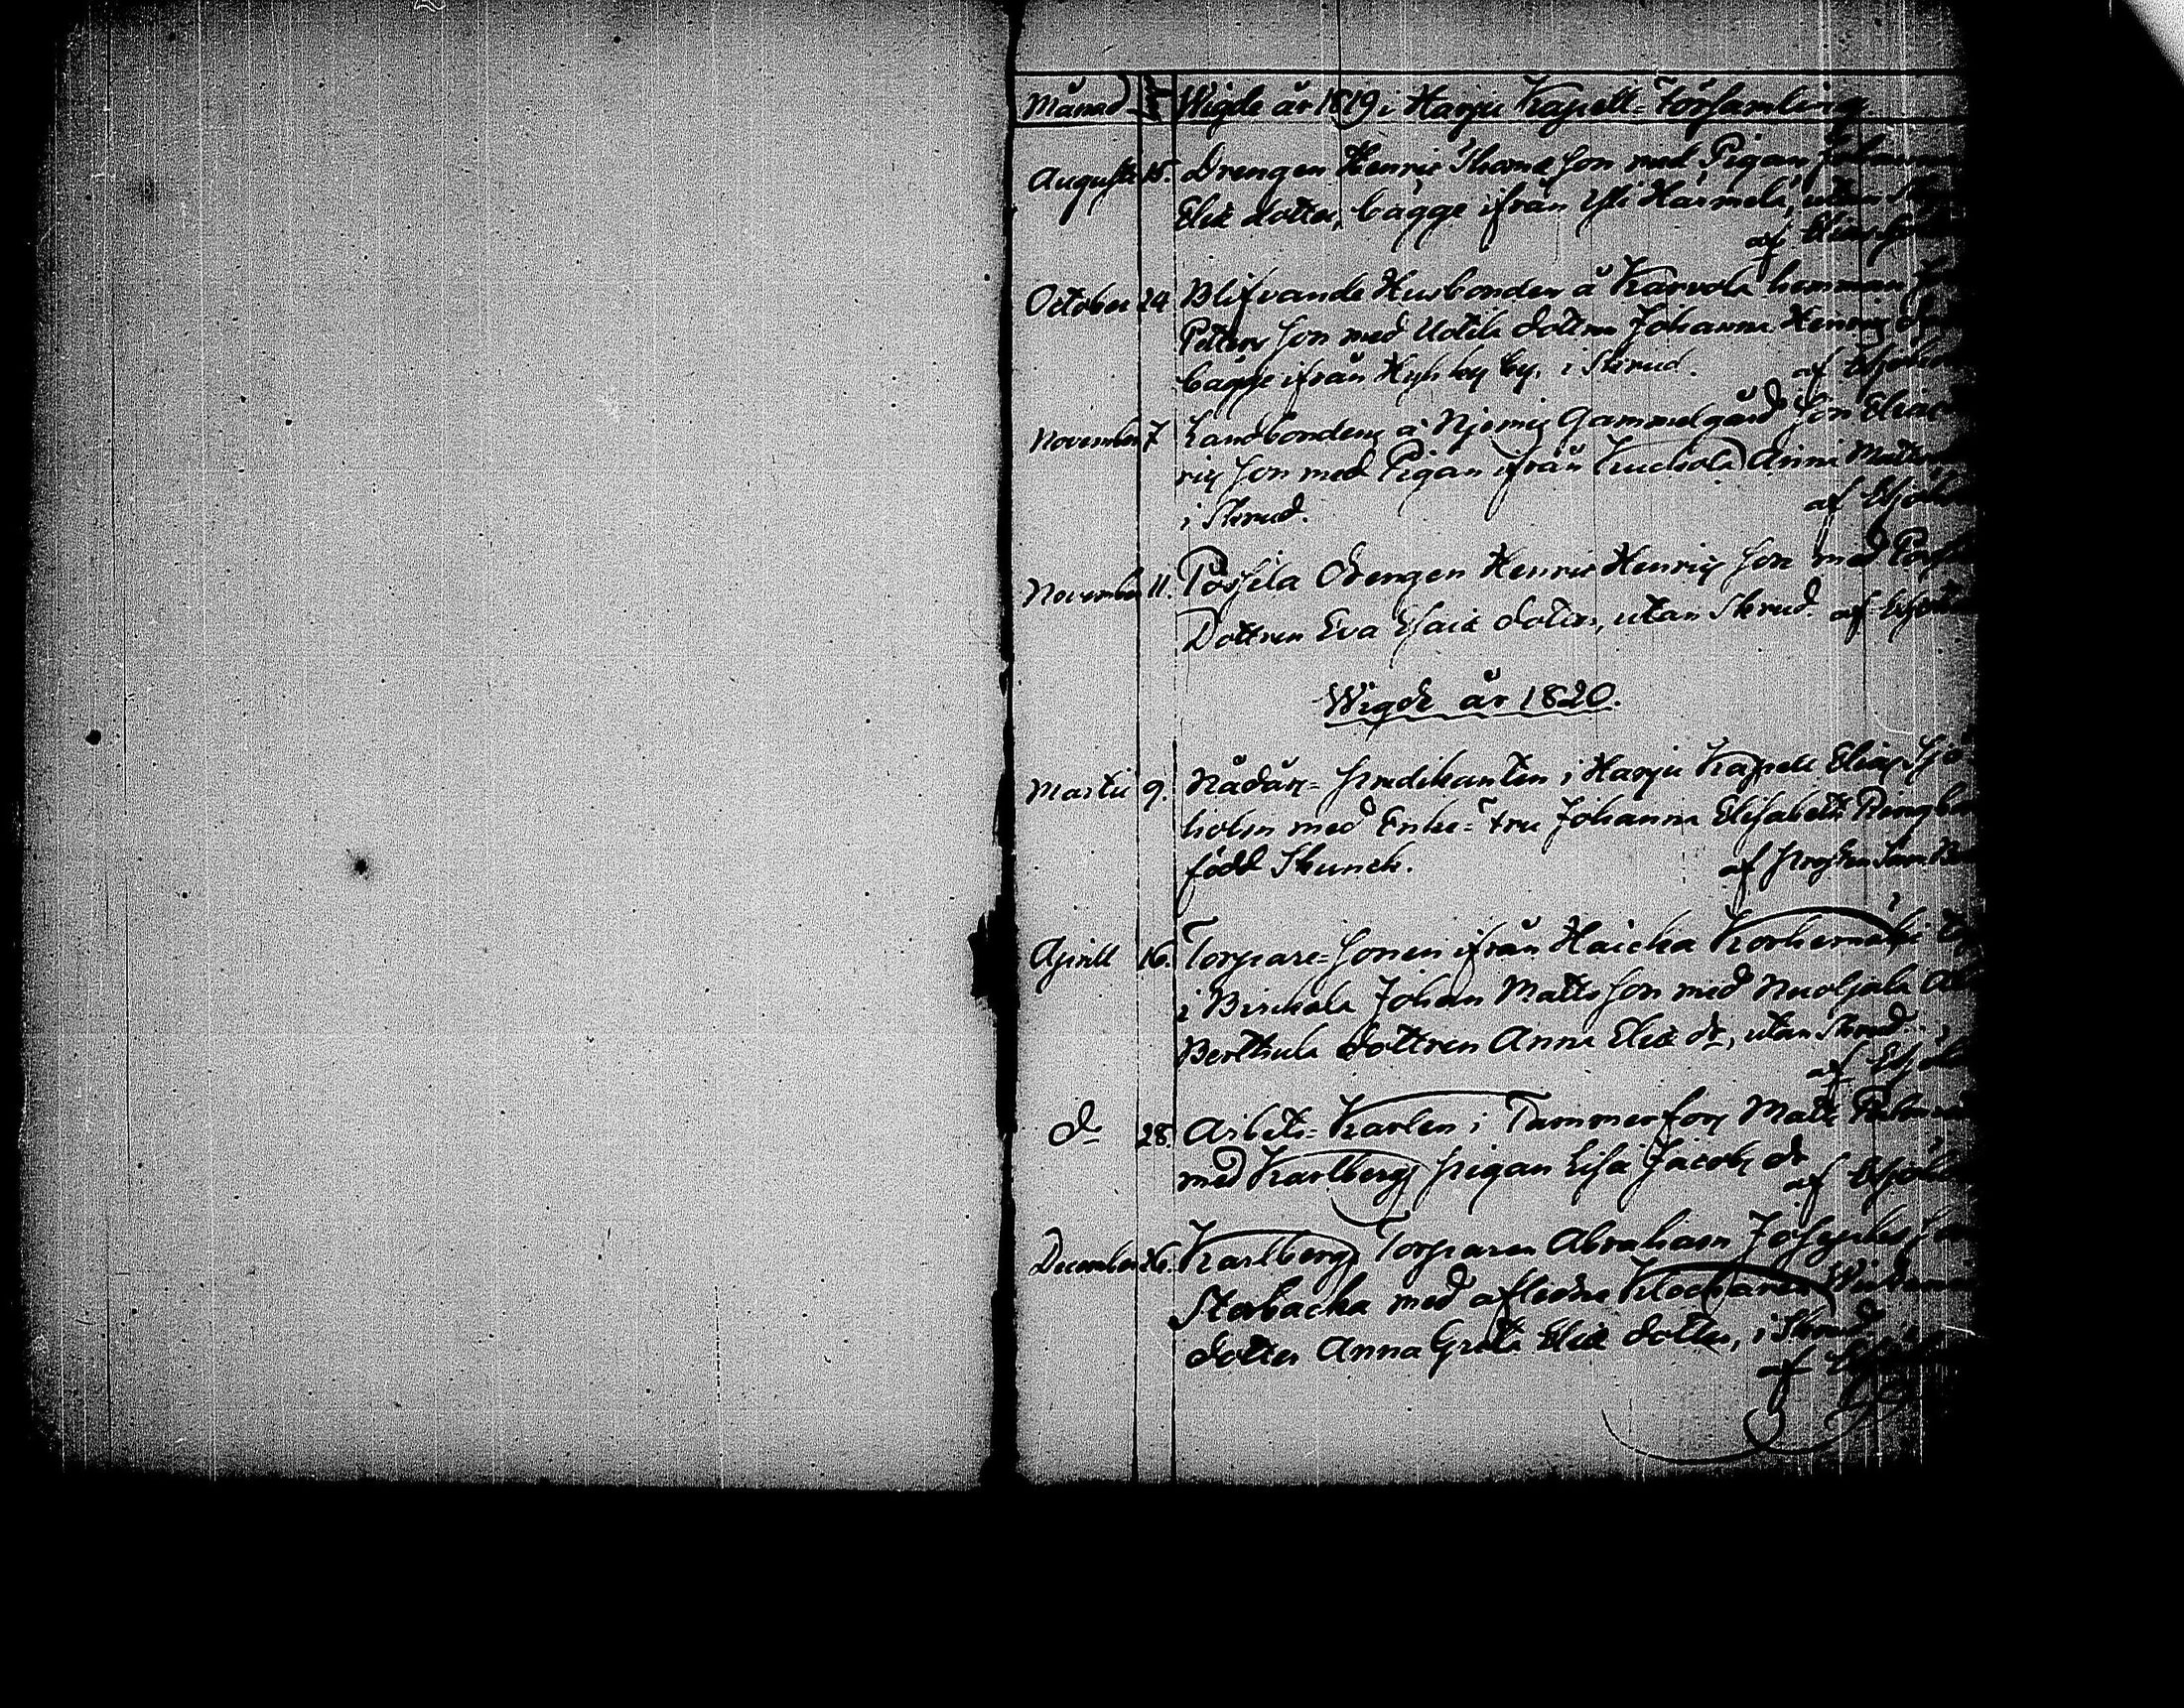 Månad Wigde år 1819 i Harju Kapell-Församling.
Augusti 15. Drengen Henric Thomæ Son med Pigan
Eliæ dotter, bägge ifrån Yli Härmelä, utan
af
October 24. Blifvande Husbonden å Karvola hemman
Peters Son med Uotila dottren Johanna Henrics
bägge ifrån Hyhky by, i Skrud. af
November 7. Landbondens å Njemis Gammelgård Son
rics Son med Pigan ifrån Kuckola Anna Matts
i Skrud. af
November 11. Posfila Drengen Henric Henrics Son med
Dottren Eva Esaiæ dotter, utan Skrud. af
Wigde år 1820.
Martii 9. Nådårs-predikanten i Harju Kapell Elias Sjö
holm med Enke-Fru Johanna Elisabeth
född Skunck. af
Aprill 16. Torpare-Sonen ifrån Haicka Korkemäki
i Birckala Johan Matts Son med Nuoljala
Berthula dottren Anna Eliæ dr, utan Skrud.
af
do 28. Arbets-Karlen i Tammerfors Matts
med Karlbergs pigan Lisa Jacobs dr
af
December 26. Karlbergs Torparen Abraham Josephs Son
Storbacka med afledne Klockaren
dotter Anna Greta Eliæ dotter, i Skrud
af